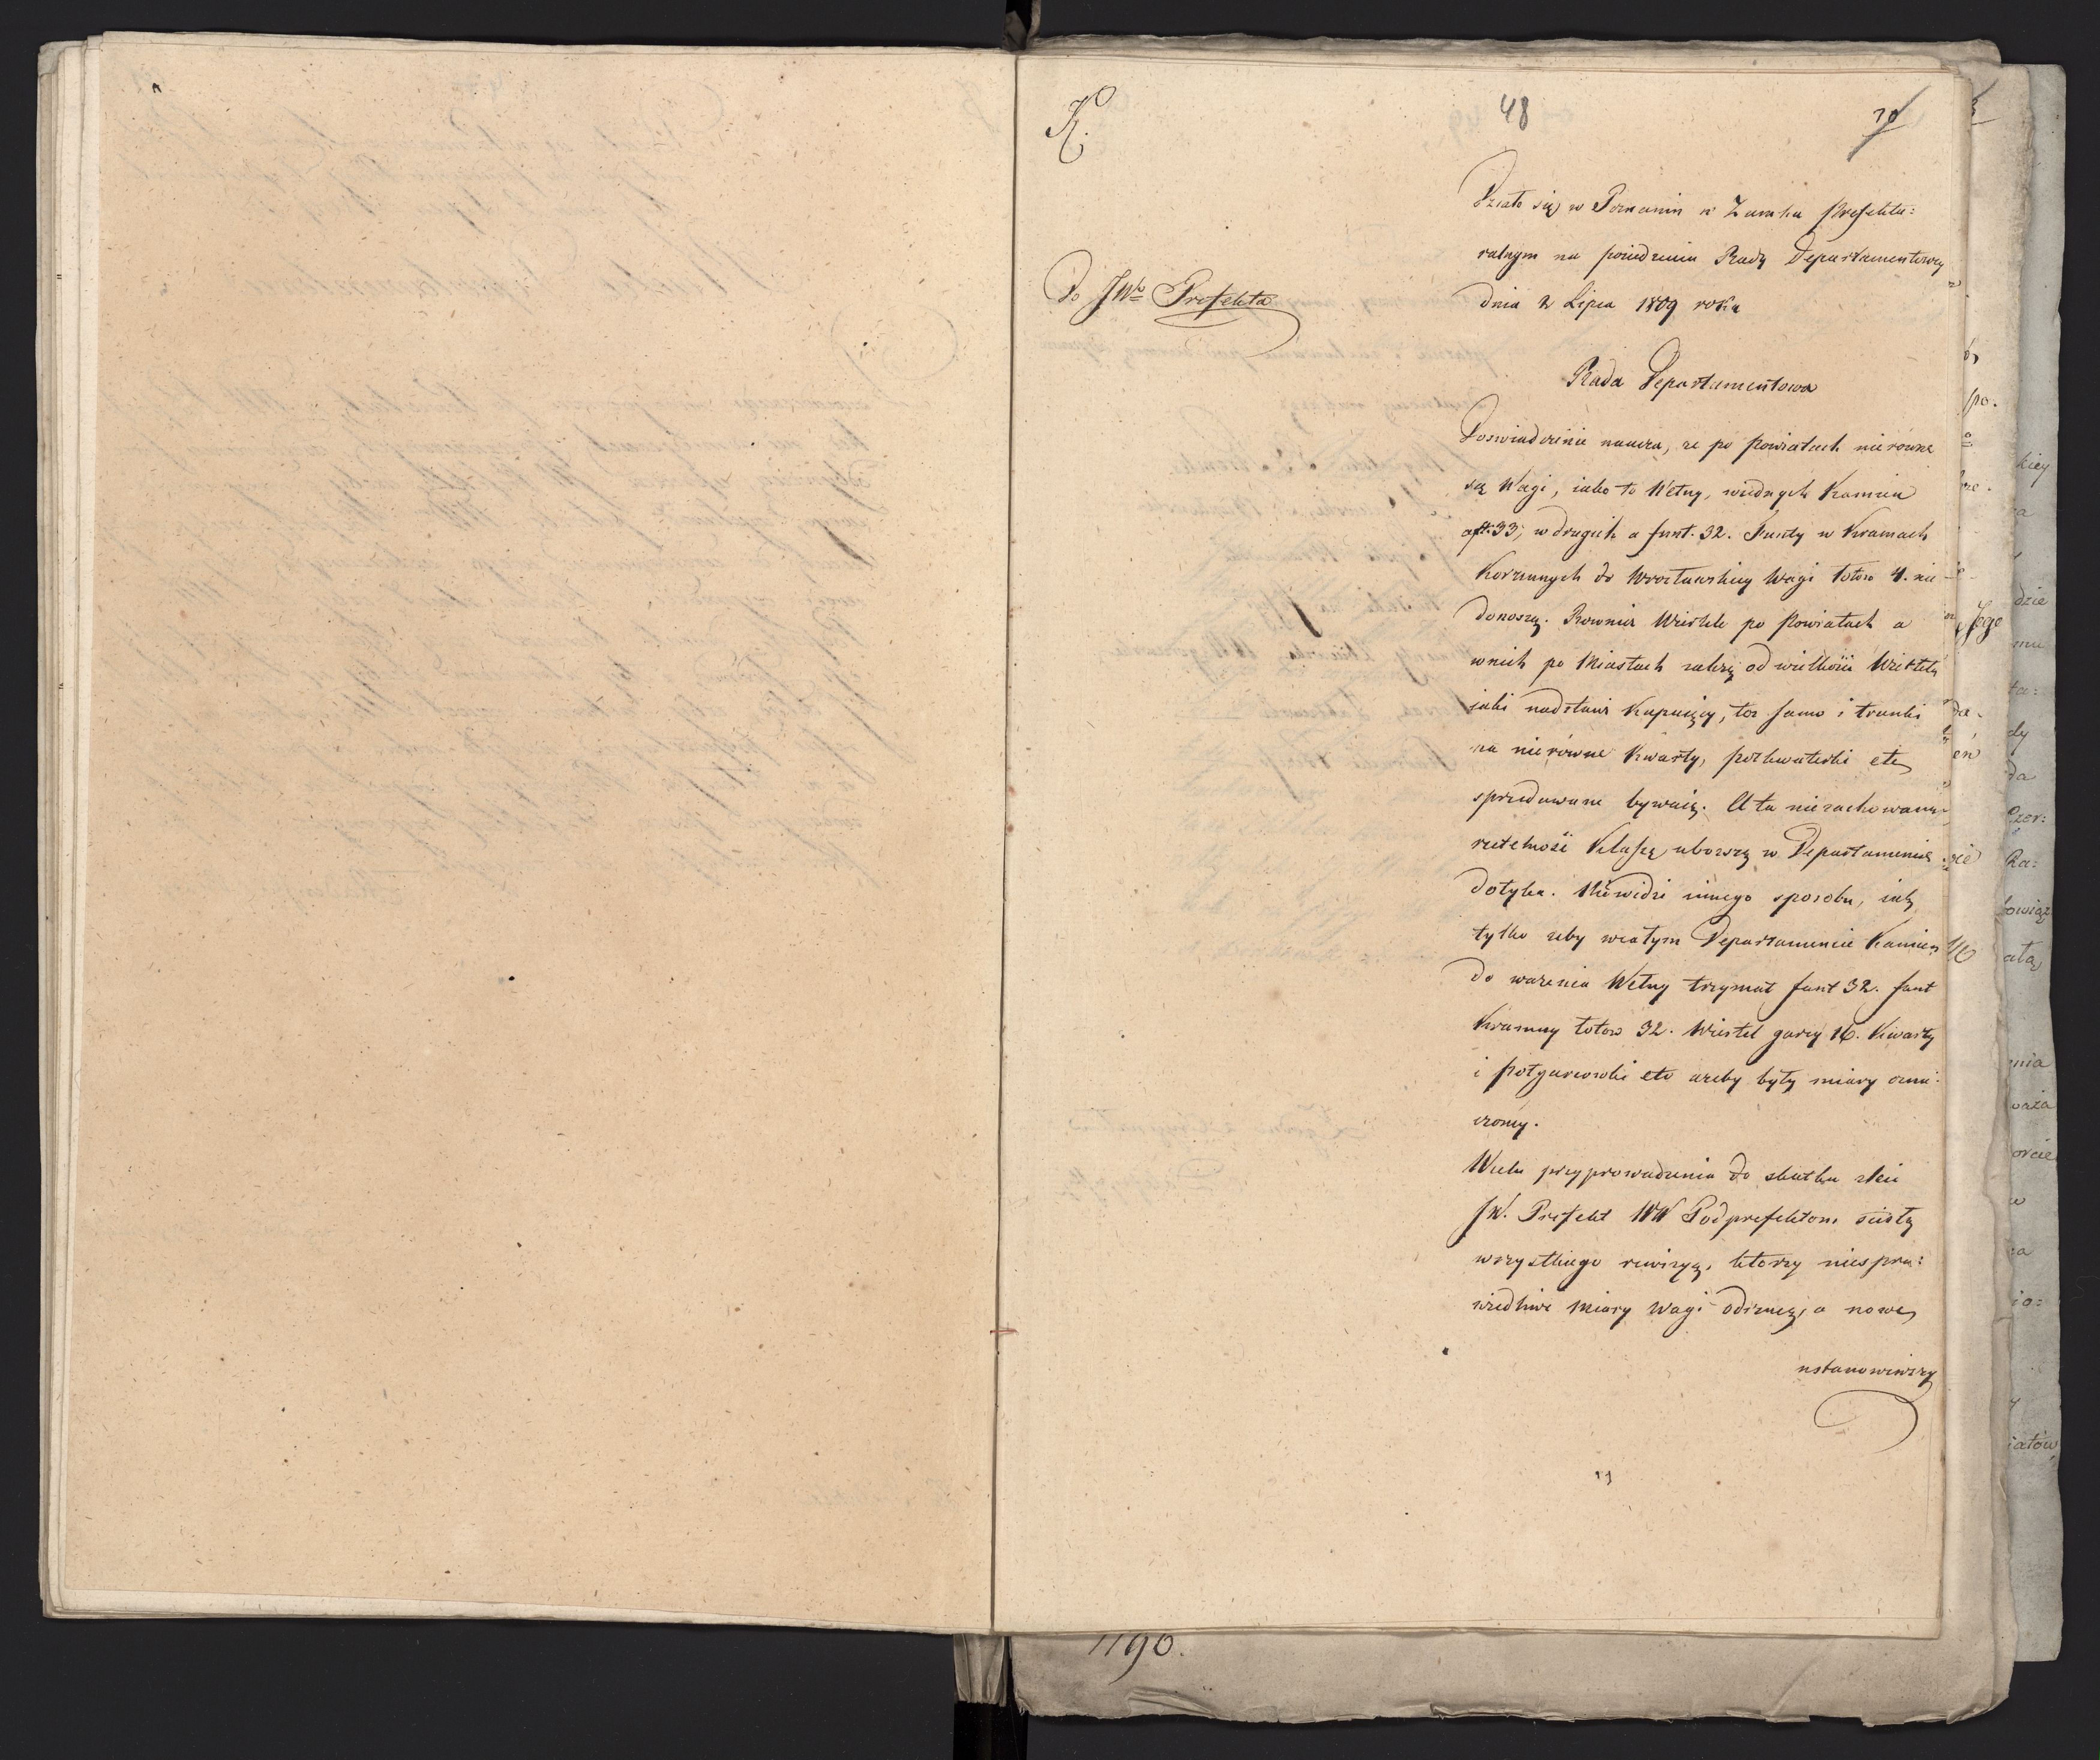 K.
48
70
Działo się w Poznaniu w Zamku Prefektu:
ralnym na posiedzeniu Rady Departamentowey
dnia 2 Lipca 1809 roku
Do JWo Prefekta
Rada Departamentowa
Doswiadczenie naucza, ze po Powiatach nierowne
są Wagi, iako to Wełny, wiednych Kamien
a ft. 33, w drugich a funt. 32. Funty w Kramach
Korzennych do Wrocławskiey Wagi łotow 4. nie
donoszą. Rownież Wiertele po Powiatach a
wnich po Miastach zależą od wielkości Wiertela
jaki nadstawi Kupuiący, toż samo i trunki
na nierówne Kwarty, połkwaterki etc
sprzedawane bywaią. A ta niezachowana
rzetelność Klassę uboższą w Departamencie
dotyka. Niewidzi innego sposobu, iak
tylko żeby wcałym Departamencie Kamien
do ważenia Wełny trzymał funt 32. funt
Kramny łotow 32. Wiertel garcy 16. Kwarty
i połgarcowki etc ażeby były miary ozna:
czoney.
Wcelu przyprowadzenia do skutku zleci
JW. Prefekt WW Podprefektom scisłą
wszystkiego rewizyą, ktorzy niespra:
wiedliwe Miary Wagi odrzucą, a nowe
ustanowiwszy
1190.